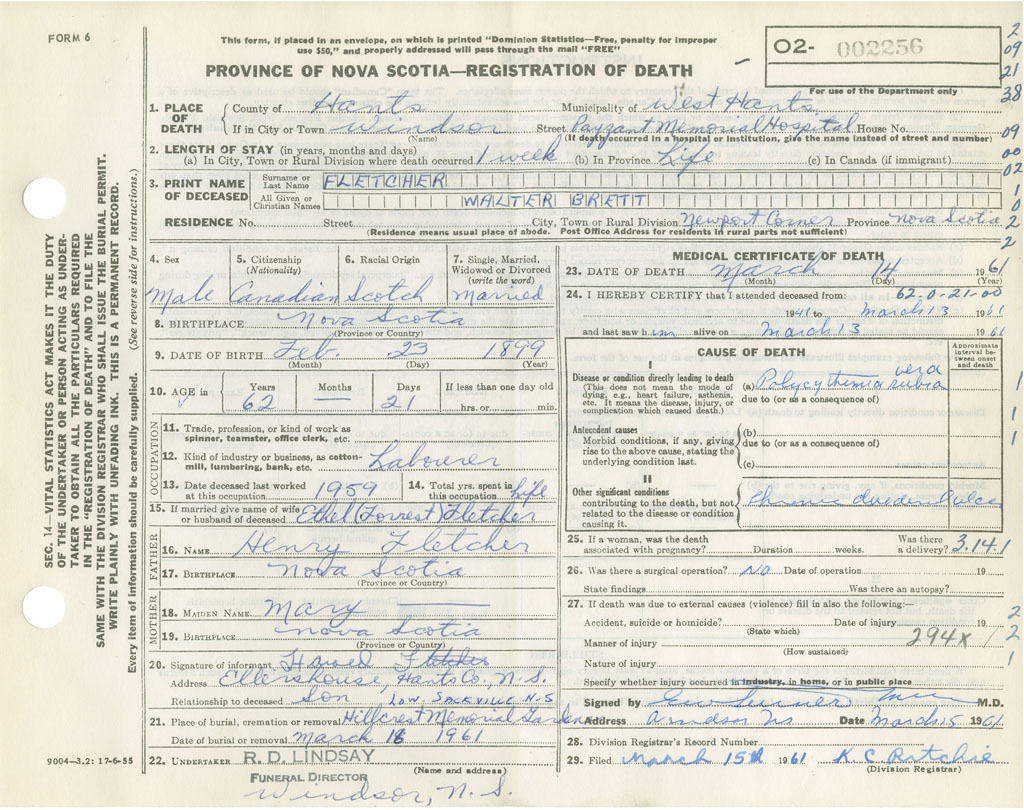 FORM 6
This form, if placed in an envelope, on which is printed "Dominion Statistics—Free, penalty for improper
use $50," and properly addressed will pass through the mail "FREE"
PROVINCE OF NOVA SCOTIA—REGISTRATION OF DEATH
02- 002256
For use of the Department only
2
09
21
38
09
00
02
1
0
2
2
SEC. 14—VITAL STATISTICS ACT MAKES IT THE DUTY
OF THE UNDERTAKER OR PERSON ACTING AS UNDER-
TAKER TO OBTAIN ALL THE PARTICULARS REQUIRED
IN THE "REGISTRATION OF DEATH" AND TO FILE THE
SAME WITH THE DIVISION REGISTRAR WHO SHALL ISSUE THE BURIAL PERMIT.
WRITE PLAINLY WITH UNFADING INK. THIS IS A PERMANENT RECORD.
Every item of information should be carefully supplied. (See reverse side for instructions.)
1. PLACE OF DEATH County of Hants Municipality of West Hants
If in City or Town Windsor Street Payzant Memorial Hospital House No.
(Name) (If death occurred in a hospital or institution, give the name instead of street and number)
2. LENGTH OF STAY (in years, months and days)
(a) In City, Town or Rural Division where death occurred 1 week (b) In Province Life (c) In Canada (if immigrant)
3. PRINT NAME OF DECEASED Surname or Last Name FLETCHER
All Given or Christian Names WALTER BRETT
RESIDENCE No. Street City, Town or Rural Division Newport Corner Province Nova Scotia
(Residence means usual place of abode. Post Office Address for residents in rural parts not sufficient)
4. Sex 5. Citizenship (Nationality) 6. Racial Origin 7. Single, Married, Widowed or Divorced (write the word)
Male Canadian Scotch Married
8. BIRTHPLACE Nova Scotia
(Province or Country)
9. DATE OF BIRTH Feb. 23 1899
(Month) (Day) (Year)
10. AGE in Years Months Days If less than one day old
62 — 21 hrs. or min.
OCCUPATION
11. Trade, profession, or kind of work as
spinner, teamster, office clerk, etc.
12. Kind of industry or business, as cotton-
mill, lumbering, bank, etc. Labourer
13. Date deceased last worked at this occupation 1959 14. Total yrs. spent in this occupation Life
15. If married give name of wife or husband of deceased Ethel (Forrest) Fletcher
FATHER
16. NAME Henry Fletcher
17. BIRTHPLACE Nova Scotia
(Province or Country)
MOTHER
18. MAIDEN NAME Mary —
19. BIRTHPLACE Nova Scotia
(Province or Country)
20. Signature of informant Fletcher
Address Ellershouse, Hants Co., N.S.
Relationship to deceased Son LOW SACKVILLE N-S
21. Place of burial, cremation or removal Hillcrest Memorial Garden
Date of burial or removal March 18 1961
22. UNDERTAKER R. D. LINDSAY
(Name and address)
FUNERAL DIRECTOR
Windsor, N.S.
9004—3.2: 17-6-55
MEDICAL CERTIFICATE OF DEATH
23. DATE OF DEATH March 14 1961
(Month) (Day) (Year)
24. I HEREBY CERTIFY that I attended deceased from: 62-0-21-00
1941 to March 13 1961
and last saw him alive on March 13 1961
CAUSE OF DEATH
Approximate interval between onset and death
I
Disease or condition directly leading to death
(This does not mean the mode of
dying, e.g., heart failure, asthenia,
etc. It means the disease, injury, or
complication which caused death.)
(a) Polycythemia rubra vera
due to (or as a consequence of)
Antecedent causes
Morbid conditions, if any, giving
rise to the above cause, stating the
underlying condition last.
(b)
due to (or as a consequence of)
(c)
1
1
1
II
Other significant conditions
contributing to the death, but not
related to the disease or condition
causing it.
Chronic duoden ulcer
25. If a woman, was the death
associated with pregnancy? Duration weeks. Was there a delivery? 3.14.1
26. Was there a surgical operation? No Date of operation 19
State findings Was there an autopsy?
27. If death was due to external causes (violence) fill in also the following:—
Accident, suicide or homicide? Date of injury 19
(State which)
Manner of injury 294x
(How sustained)
Nature of injury
2
2
1
Specify whether injury occurred in industry, in home, or in public place
Signed by M.D.
Address Windsor NS Date March 15 1961
28. Division Registrar's Record Number
29. Filed March 15th 1961 K C Ritchie
(Division Registrar)